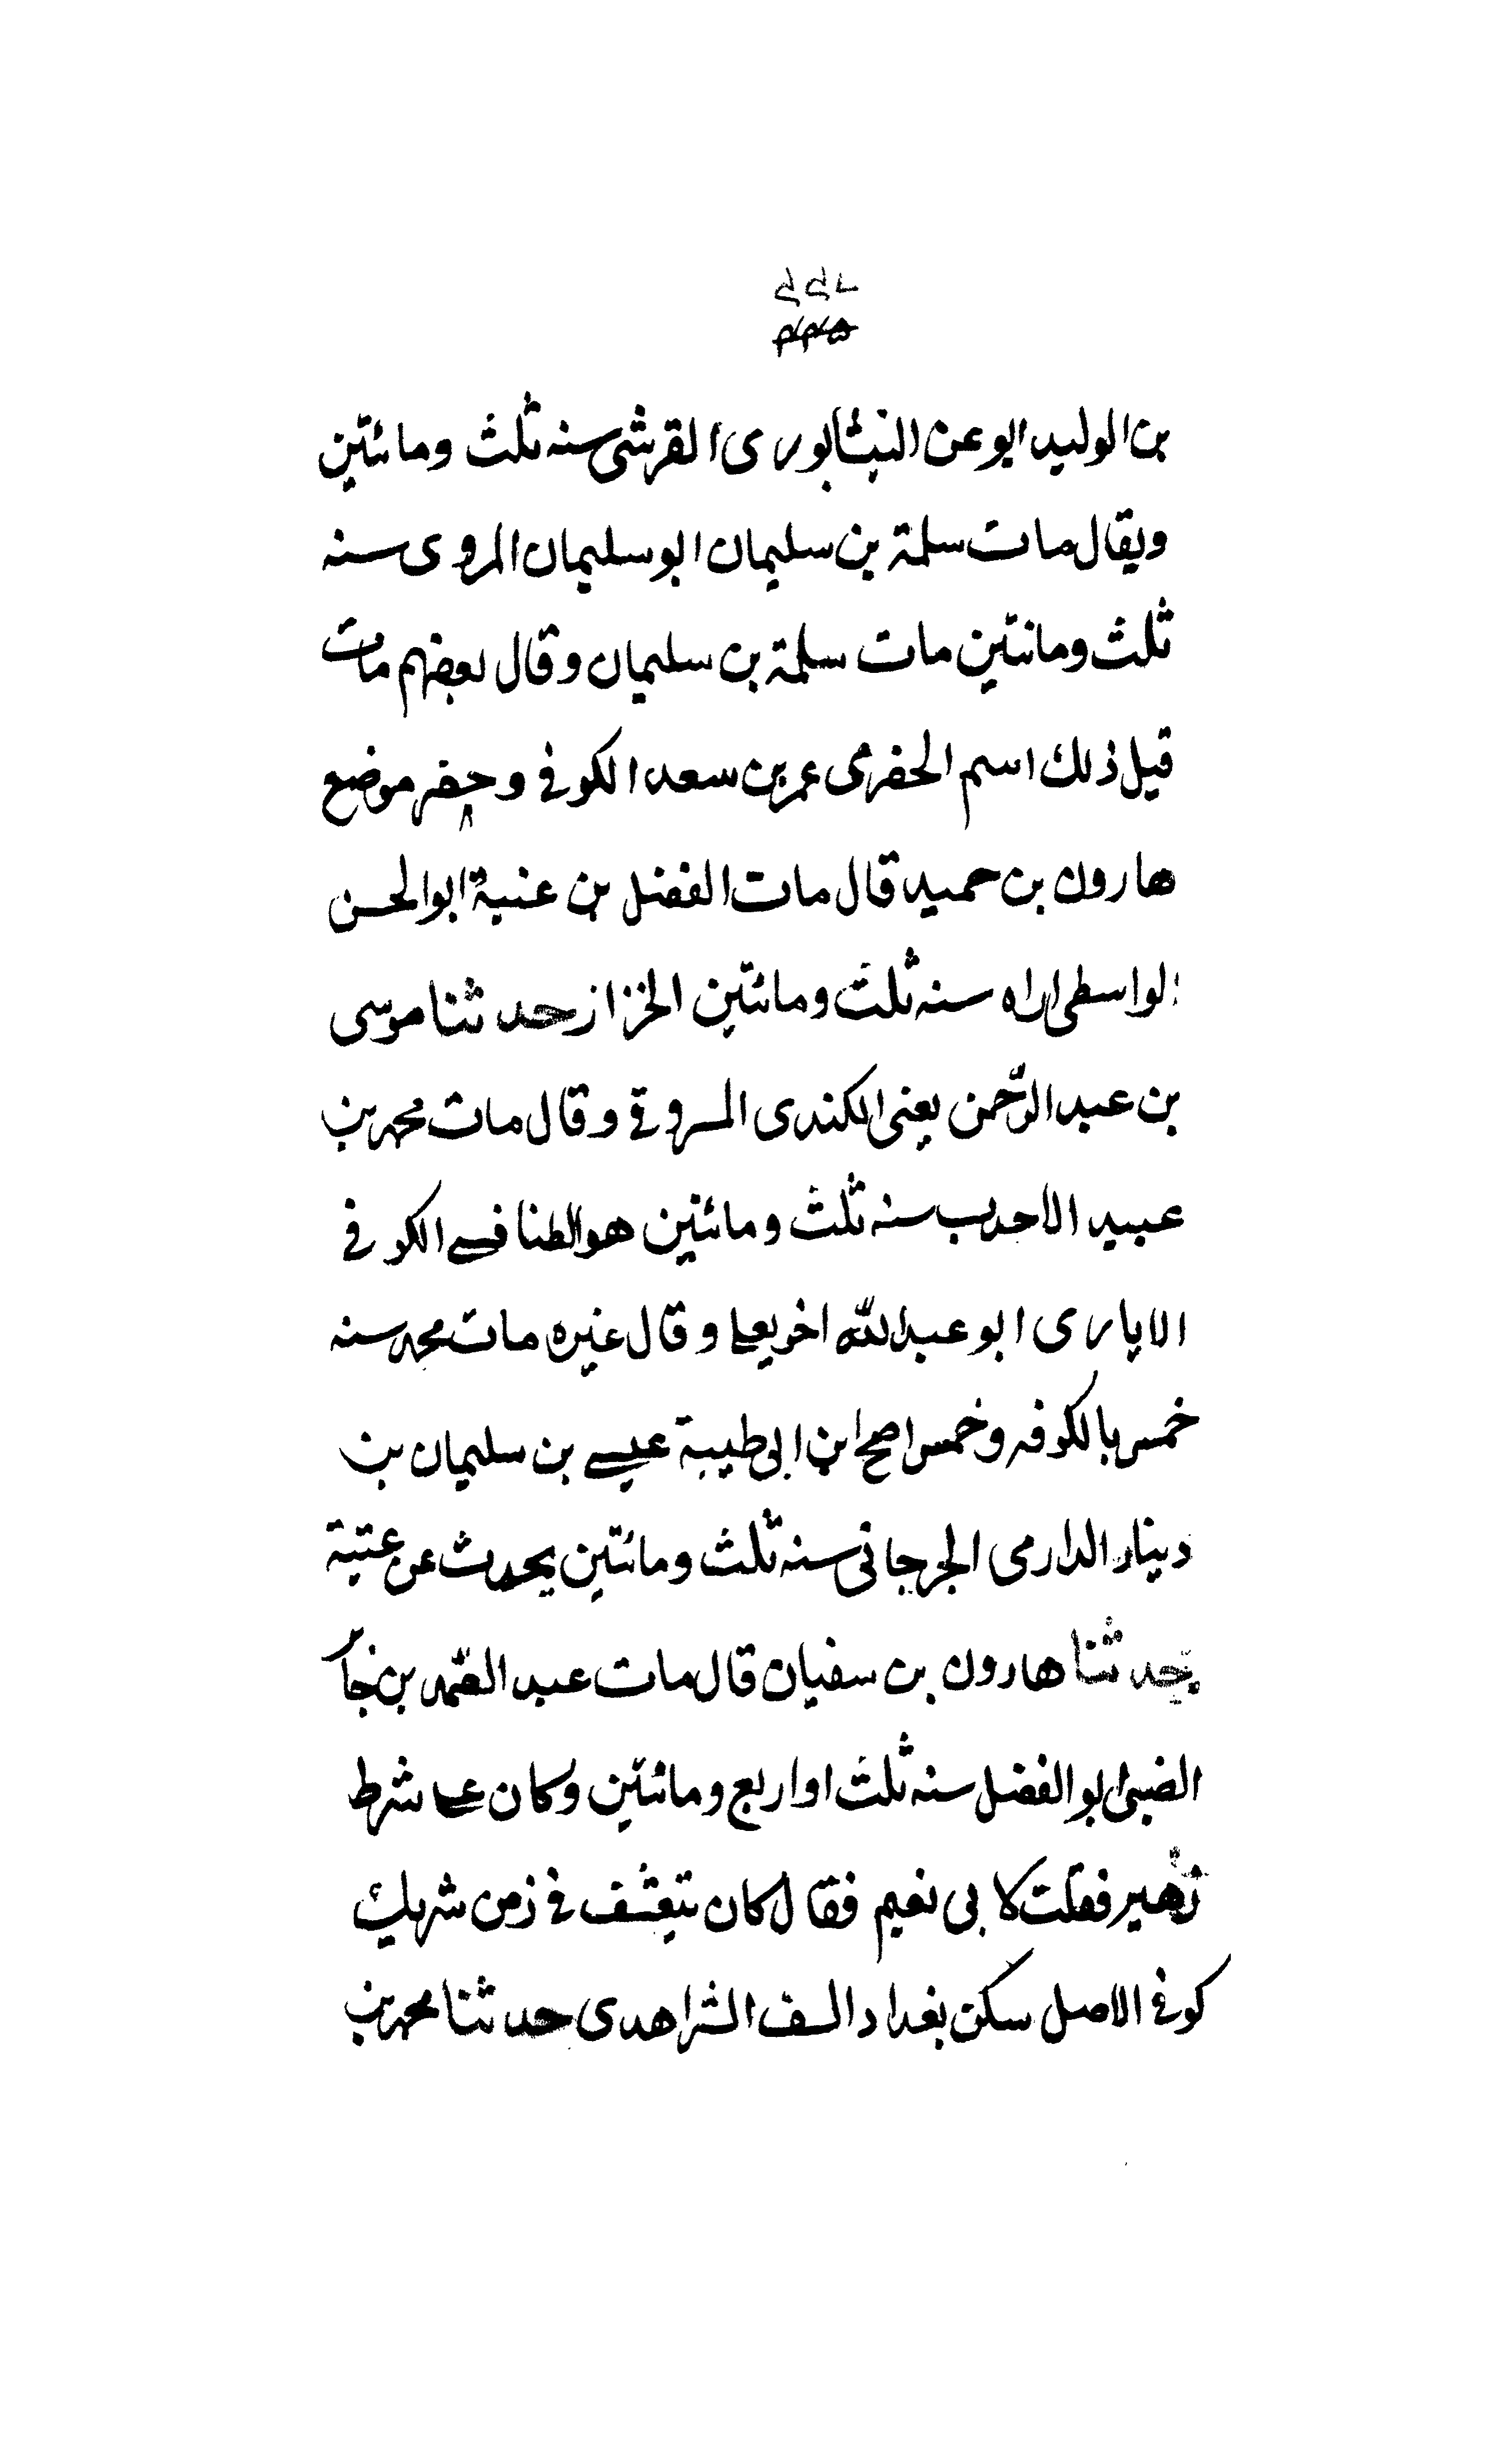 بن الوليد ابو عن النيشابورى القرشى سنه ثلث ومائتين
ويقال مات سلمة بن سليمان ابو سليمان المروى سنه
ثلث ومائتين مات سلمة بن سليمان وقال بعضهم مات
قبل ذلك اسم الحفرى عمر بن سعد الكوفى وحفر موضع
هارون بن حميد قال مات الفضل بن عنبة ابو الحسن
الواسطى اراه سنه ثلث ومائتين الخزاز حدثنا موسى
بن عبد الرحمن يعنى الكندى المسروقى وقال مات محمد بن
عبيد الاحدب سنه ثلث ومائتين هو الطنافسى الكوفى
الايارى ابو عبد الله اخو يعلى وقال غيره مات محمد سنه
خمس بالكوفه وخمس اصح ابن ابى طيبة عيسى بن سليمان بن
دينار الدارمى الجرجانى سنه ثلث ومائتين يحدث عن عتبة
حدثنا هارون بن سفيان قال مات عبد الصمد بن
الضبى ابو الفضل سنه ثلث او اربع ومائتين وكان على شرط
زهير فقلت لابى نعيم فقال كان يتقشف فى زمن شريك
كوفى الاصل سكن بغداد حدثنا محمد بن